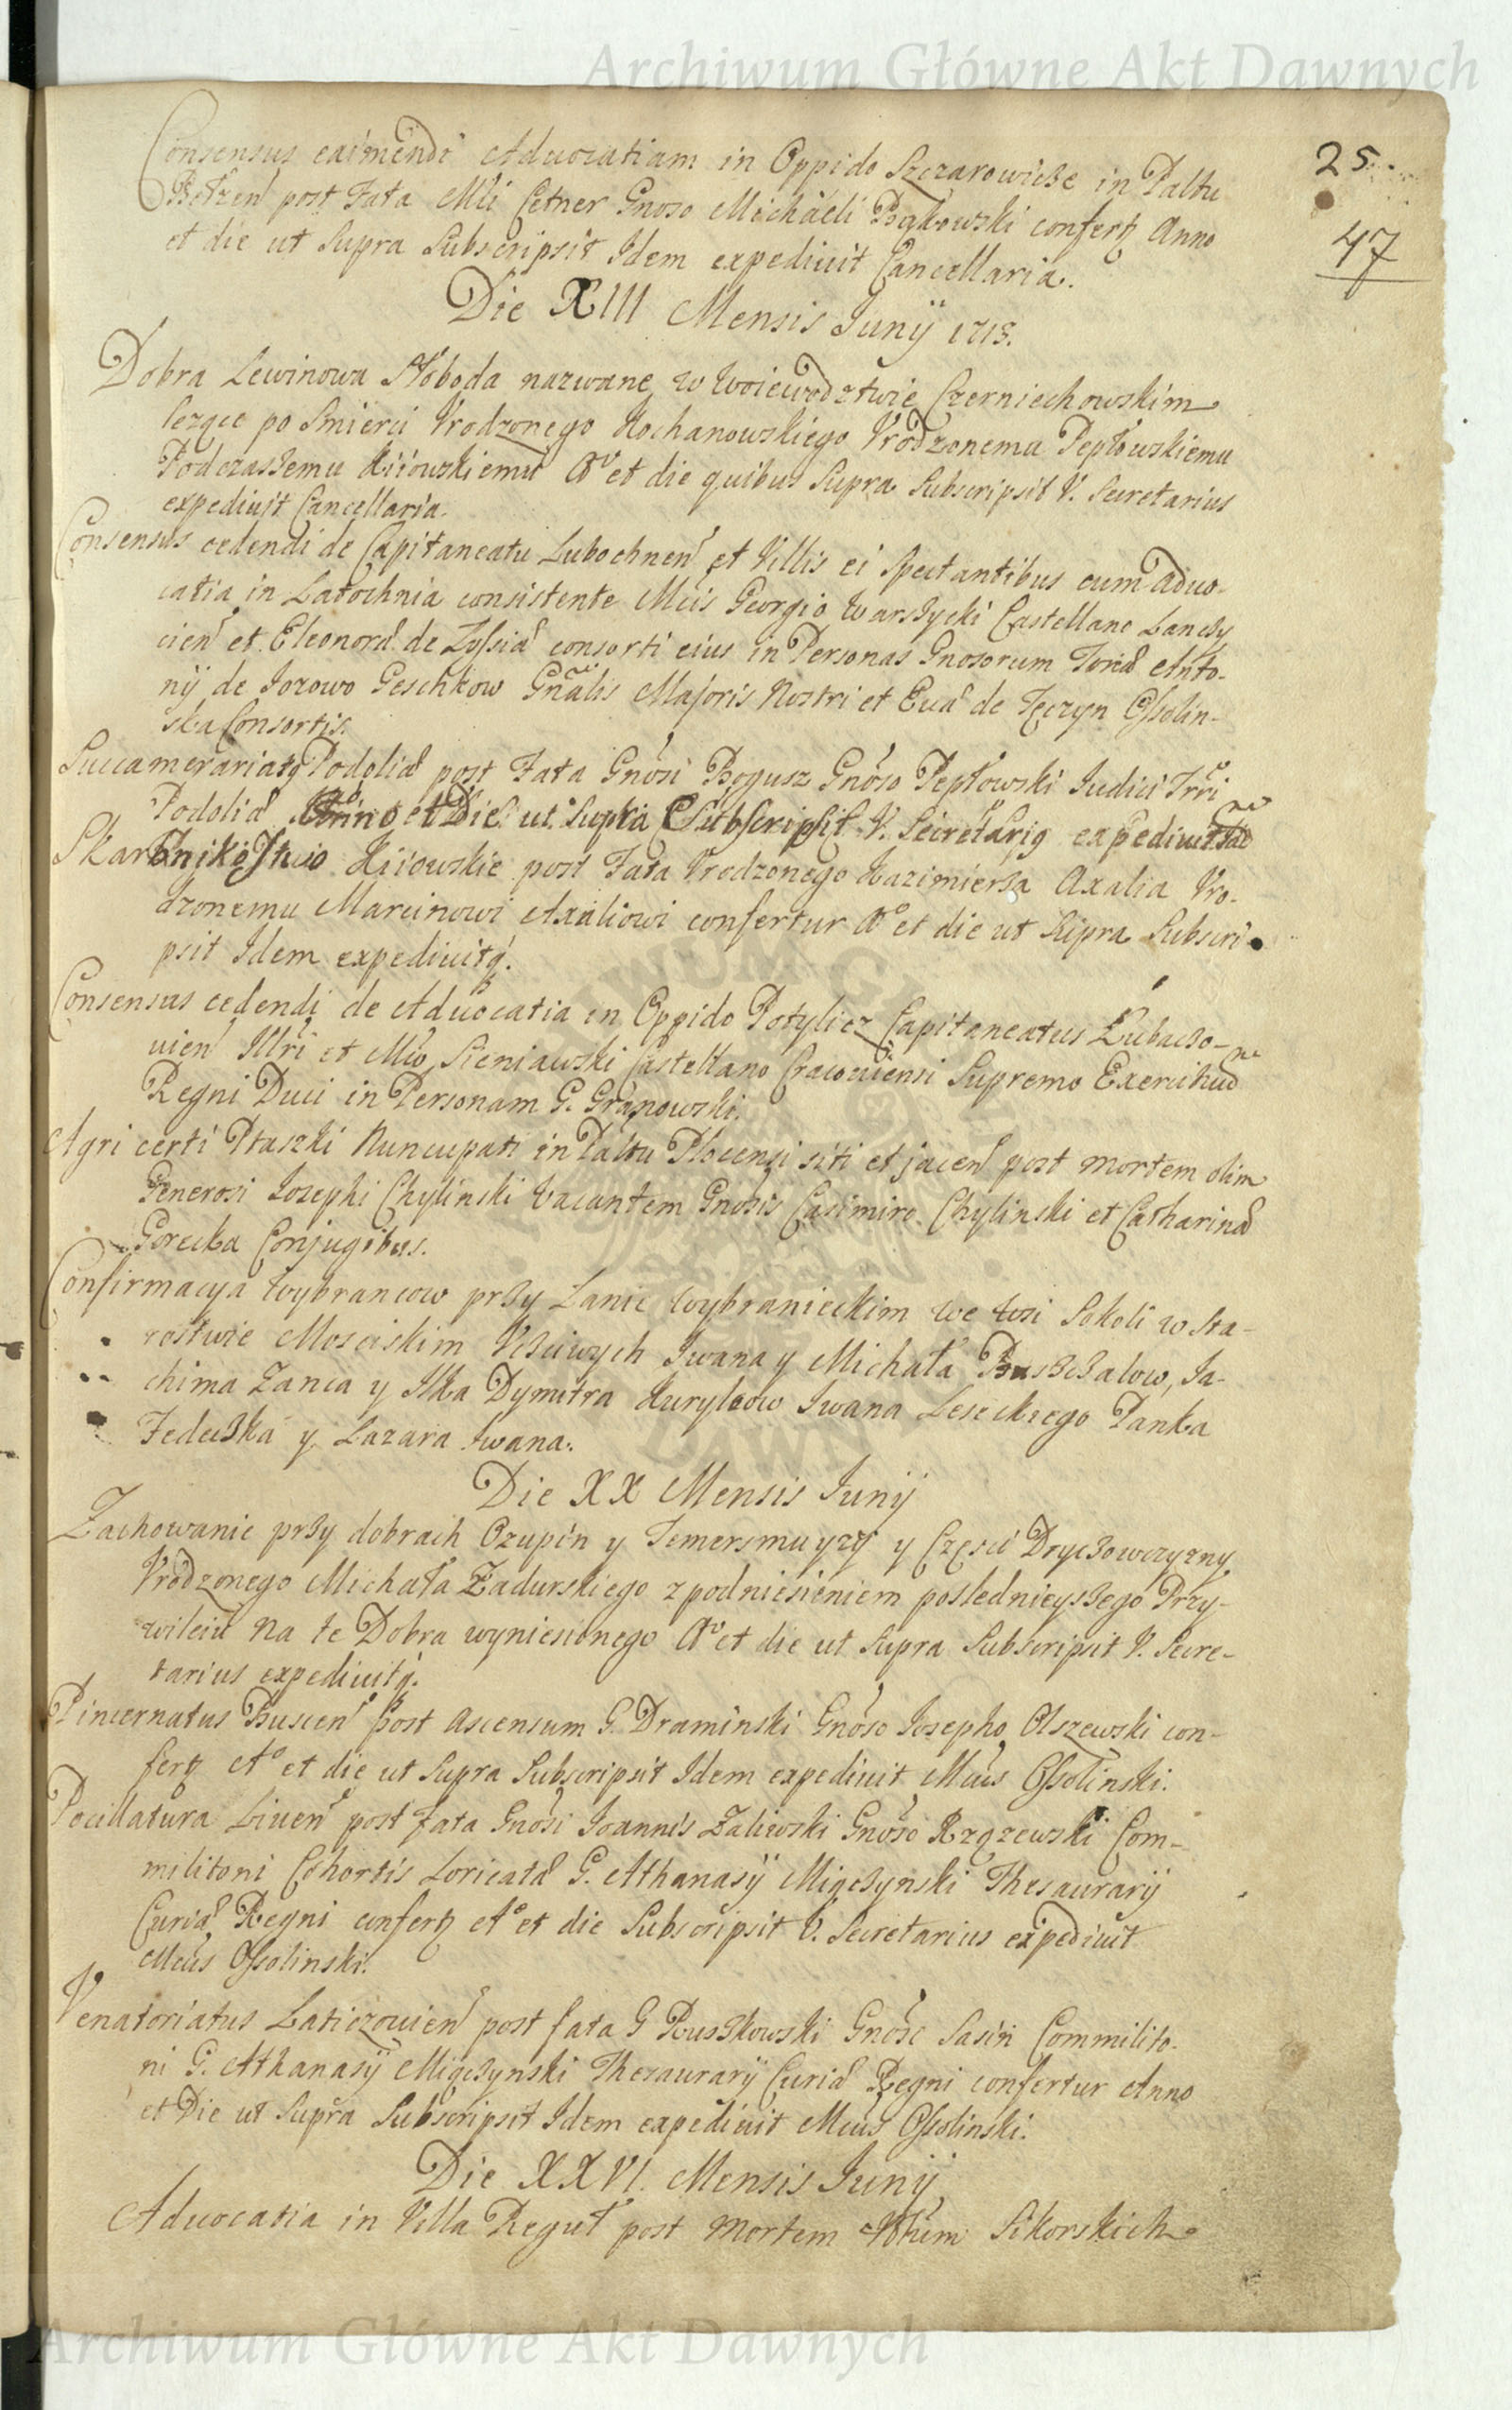 Archiwum Główne Akt Dawnych
25.
47
Consensus eximendi Advocatiam in Oppido Szczarowicze in Paltu
Bełzen post Fata Mci Cetner Gnoso Michaeli Bąkowski confertz Anno
et die ut Supra Subscripsit Idem expedivit Cancellaria.
Die XIII Mensis Junÿ 1713.
Dobra Lewinowa Słoboda nazwane w Woiewodztwie Czerniechowskim
lezące po Smierci Vrodzonego Kochanowskiego Vrodzonemu Pepłowskiemu
Podczaszemu Kiiowskiemu Aº et die quibus Supra Subscripsit V. Secretarius
expedivit Cancellaria.
Consensus cedendi de Capitaneatu Lubochnen et Villis ei Spectantibus cum Advo-
catia in Latochnia consistente Mcis Georgio Warszycki Castellano Lanczy
cien et Eleonora de consorti eius in Personas Gnosorum Anto-
nÿ de Jozowo Geschkow Gnalis Majoris Nostri et Eva de Tęczyn Ossolin-
ska Consortis.
Succamerariatq Podolia post Fata Gnosi Bogusz Gnoso Pepłowski Iudici Trri
Podolia Anno et Die ut Supra Subscripsit V. Secretariq expedivit
Skarbnikostwo Kiiowskie post Fata Vrodzonego Kazimiersza Axalia Vro-
dzonemu Marcinowi Axaliowi confertur Aº et die ut Supra Subscri-
psit Idem expedivitq.
Consensus cedendi de Advocatia in Oppido Potylicz Capitaneatus Lubaczo-
vien Illri et Mco Sieniawski Castellano Cracoviensi Supremo Exercituu
Regni Duci in Personam G. Granowski.
Agri certi Ptaszki Nuncupati in Paltu Plocensi siti et jacen post mortem olim
Generosi Josephi Chylinski Vacantem Gnosis Casimiro Chylinski et Catharina
Gorecka Conjugibus.
Confirmacya Wybrancow przy Lanie Wybranieckim we Wsi Sokoli w Sta-
rostwie Mosciskim Vczciwych Jwana y Michała Ja-
chima Zanca y Ilka Dymitra Kurylcow Iwana Leseckiego Panka
Fedeczka y Lazara Iwana.
Die XX Mensis Junÿ
Zachowanie przy dobrach Ozupin y Temersmuyzy y Częsci Dryczowczyzny
Vrodzonego Michała Zadurskiego z podniesieniem poslednieyszego Przy-
wileiu na te Dobra wyniesionego Aº et die ut Supra Subscripsit V. Secre-
tarius expedivitq.
Pincernatus Buscen post Ascensum G. Draminski Gnoso Josepho Olszewski con-
fertz Aº et die ut Supra Subscripsit Idem expedivit Mcus Ossolinski.
Pocillatura Liven post fata Gnosi Joannis Zaliwski Gnoso Rzązewski Com-
militoni Cohortis Loricata G. Athanasÿ Miączynski Thesaurarÿ
Curia Regni confertz Aº et die Subscripsit V. Secretarius expedivit
Mcus Ossolinski.
Venatoriatus Laticzovien post fata G Ruszkowski Gnoso Sasin Commilito-
ni G. Athanasÿ Miączynski Thesaurarÿ Curia Regni confertur Anno
et Die ut Supra Subscripsit Idem expedivit Mcus Ossolinski.
Die XXVI. Mensis Junÿ
Advocatia in Villa Reguł post mortem Sikorskich
Archiwum Główne Akt Dawnych